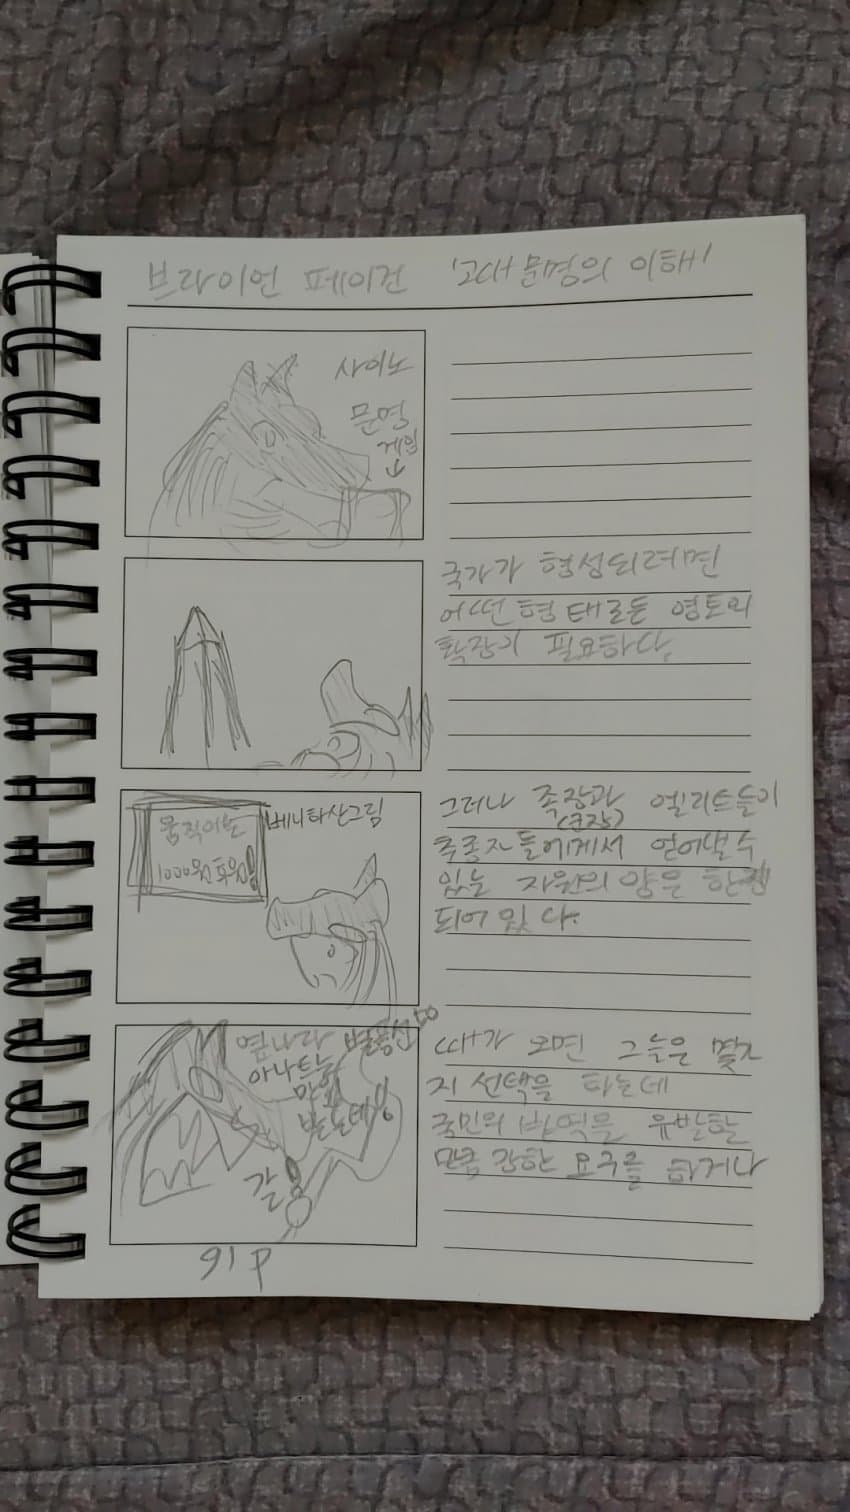 브라이언 페이건 '고대 문명의 이해'
사이노
문명
게임
국가가 형성되려면
어떤 형태로든 영토의
확장이 필요하다.
움직이는
1000원 후원
베니타산그림
그러나 족장과 엘리트들이
(군장)
추종자들에게서 얻어낼 수
있는 자원의 양은 한정
되어 있다.
옆나라
아나트는
만원
받는데
갈
따가 오면 그들은 몇가
지 선택을 하는데
국민의 반역을 유발할
만큼 강한 요구를 하거나
91p